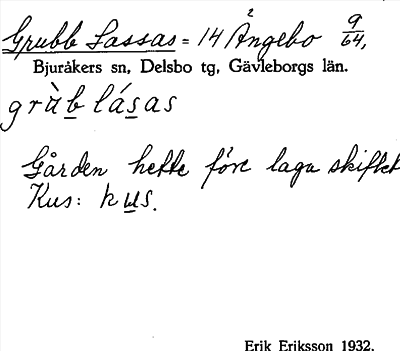 Grubb Lassas = 14 Ångebo 2 9/64,
Bjuråkers sn, Delsbo tg, Gävleborgs län.
grùb lásas
Gården hette före laga skiftet
Kus: kus.
Erik Eriksson 1932.